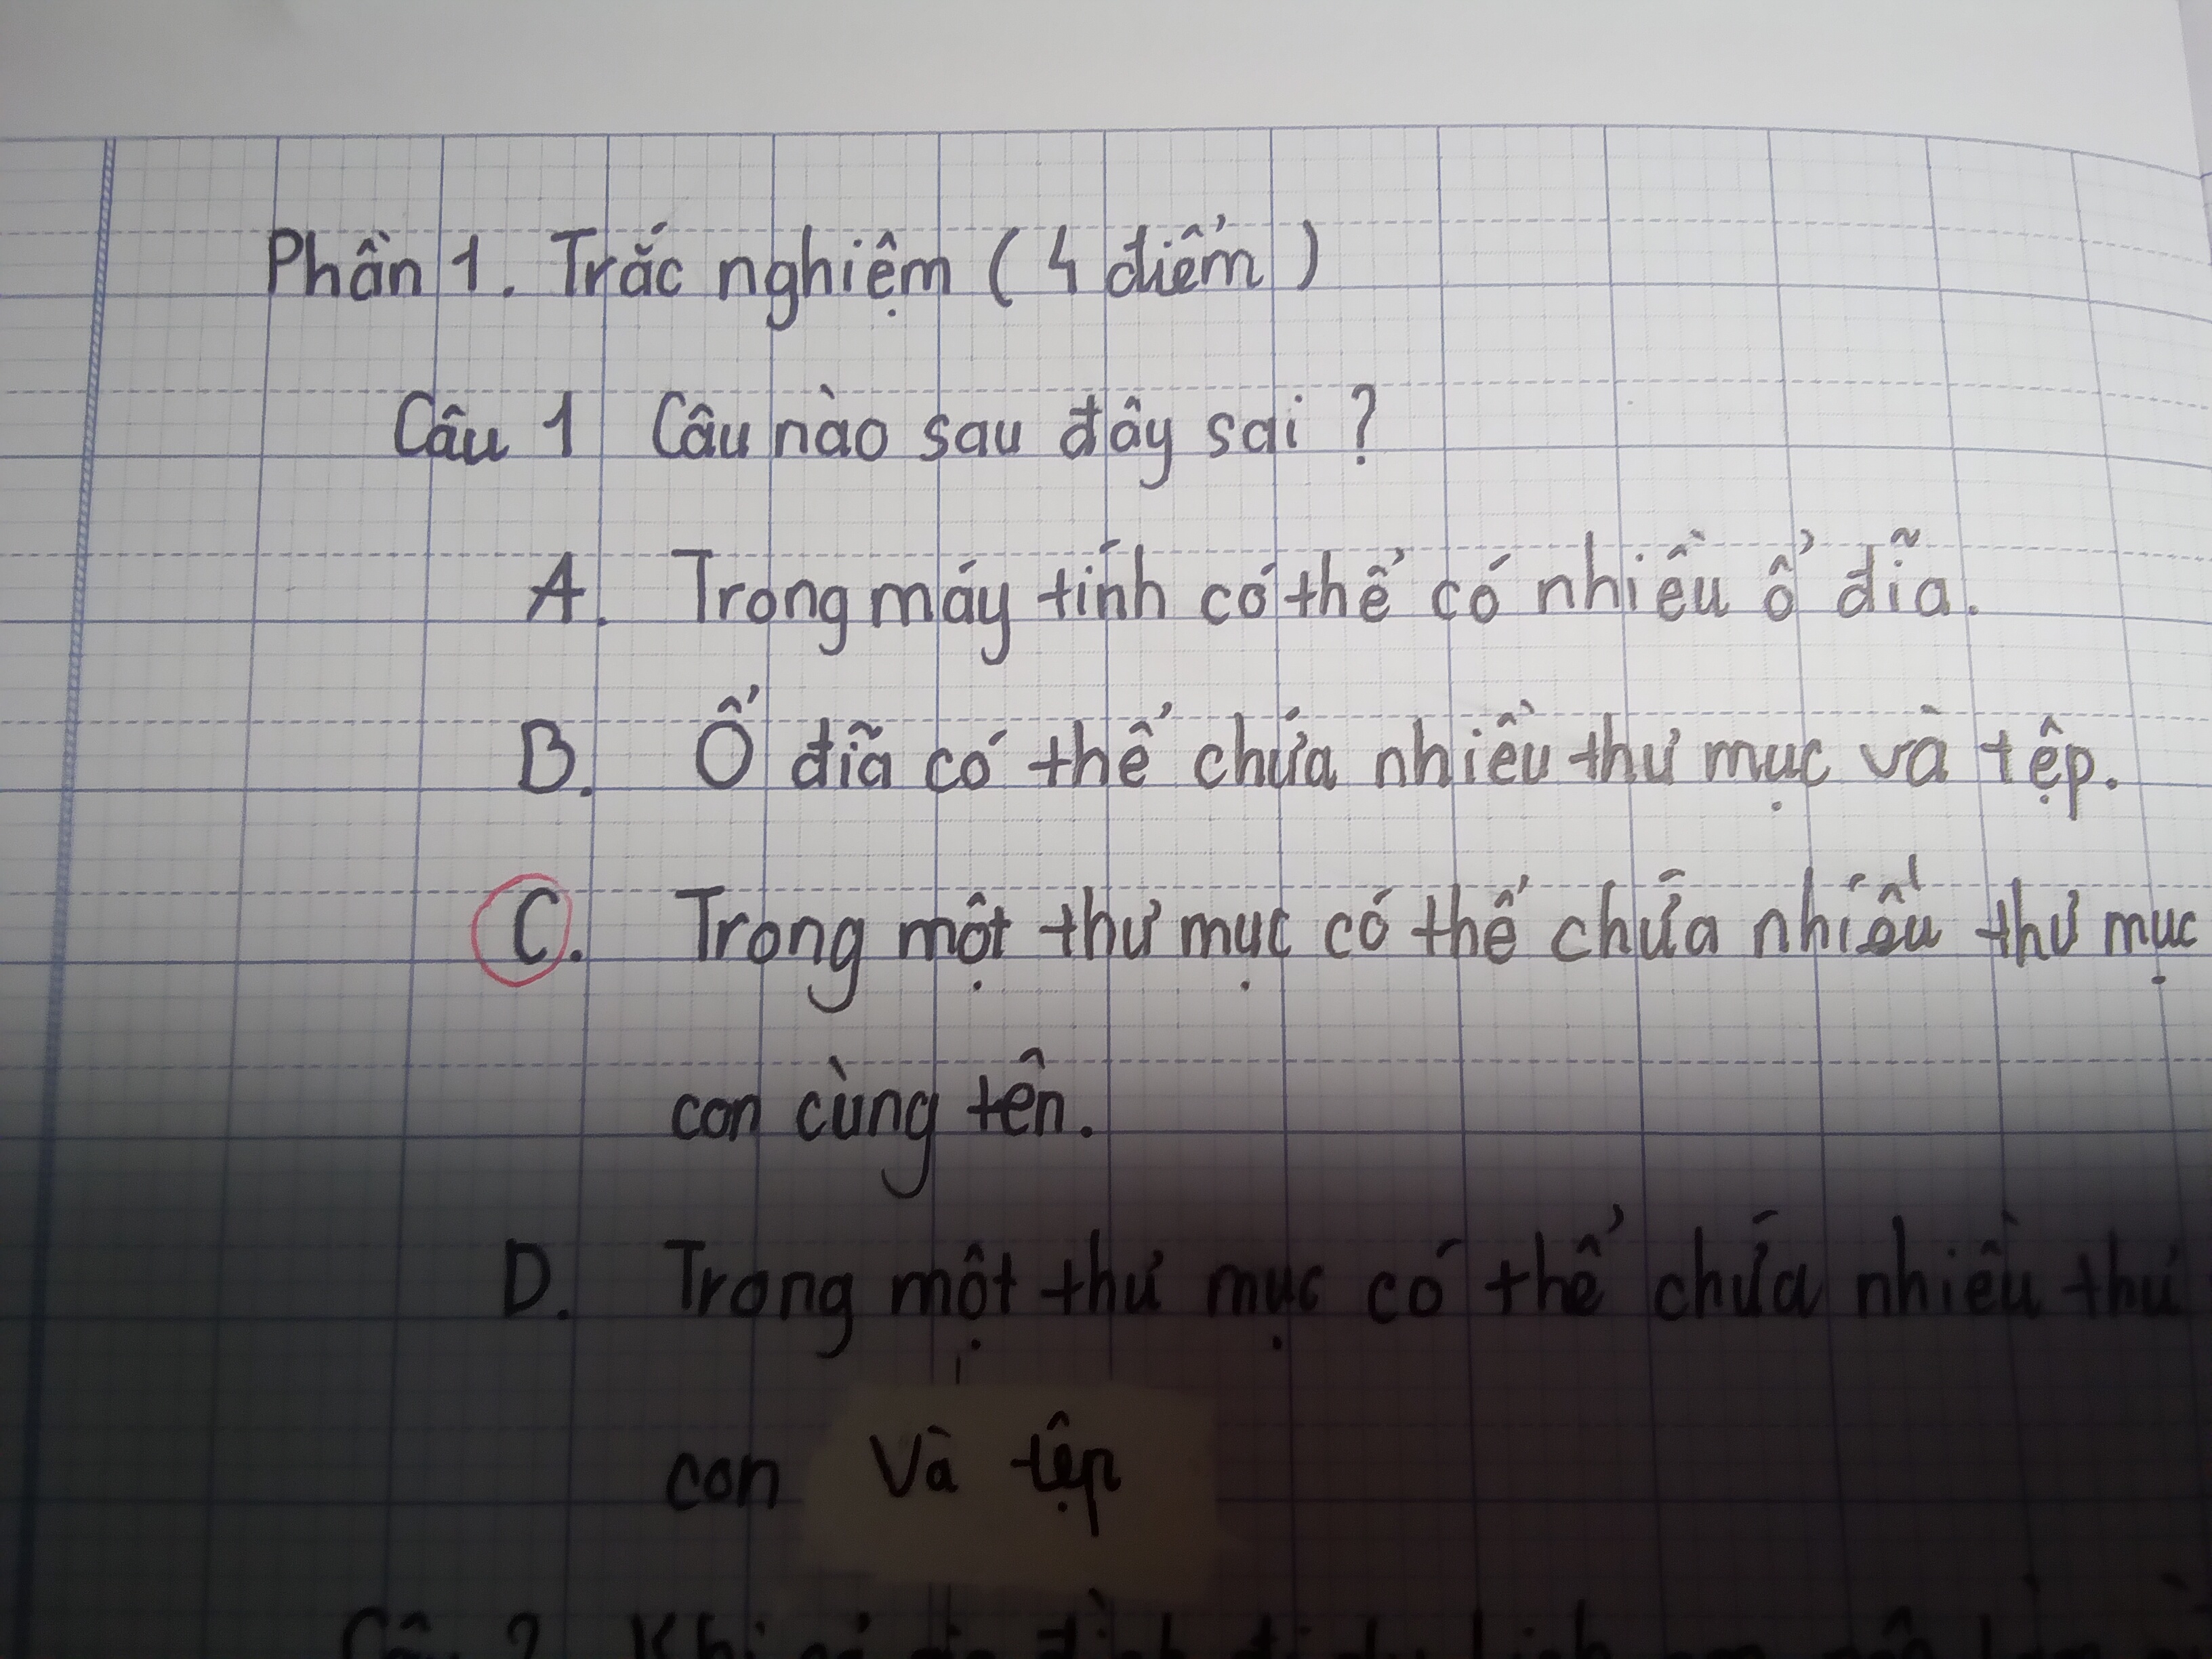 Phần 1. Trắc nghiệm (4 điểm)
Câu 1 Câu nào sau đây sai ?
A. Trong máy tính có thể có nhiều ổ đĩa.
B. Ổ đĩa có thể chứa nhiều thư mục và tệp.
C. Trong một thư mục có thể chứa nhiều thư mục
con cùng tên.
D. Trong một thư mục có thể chứa nhiều thư
con và tệp